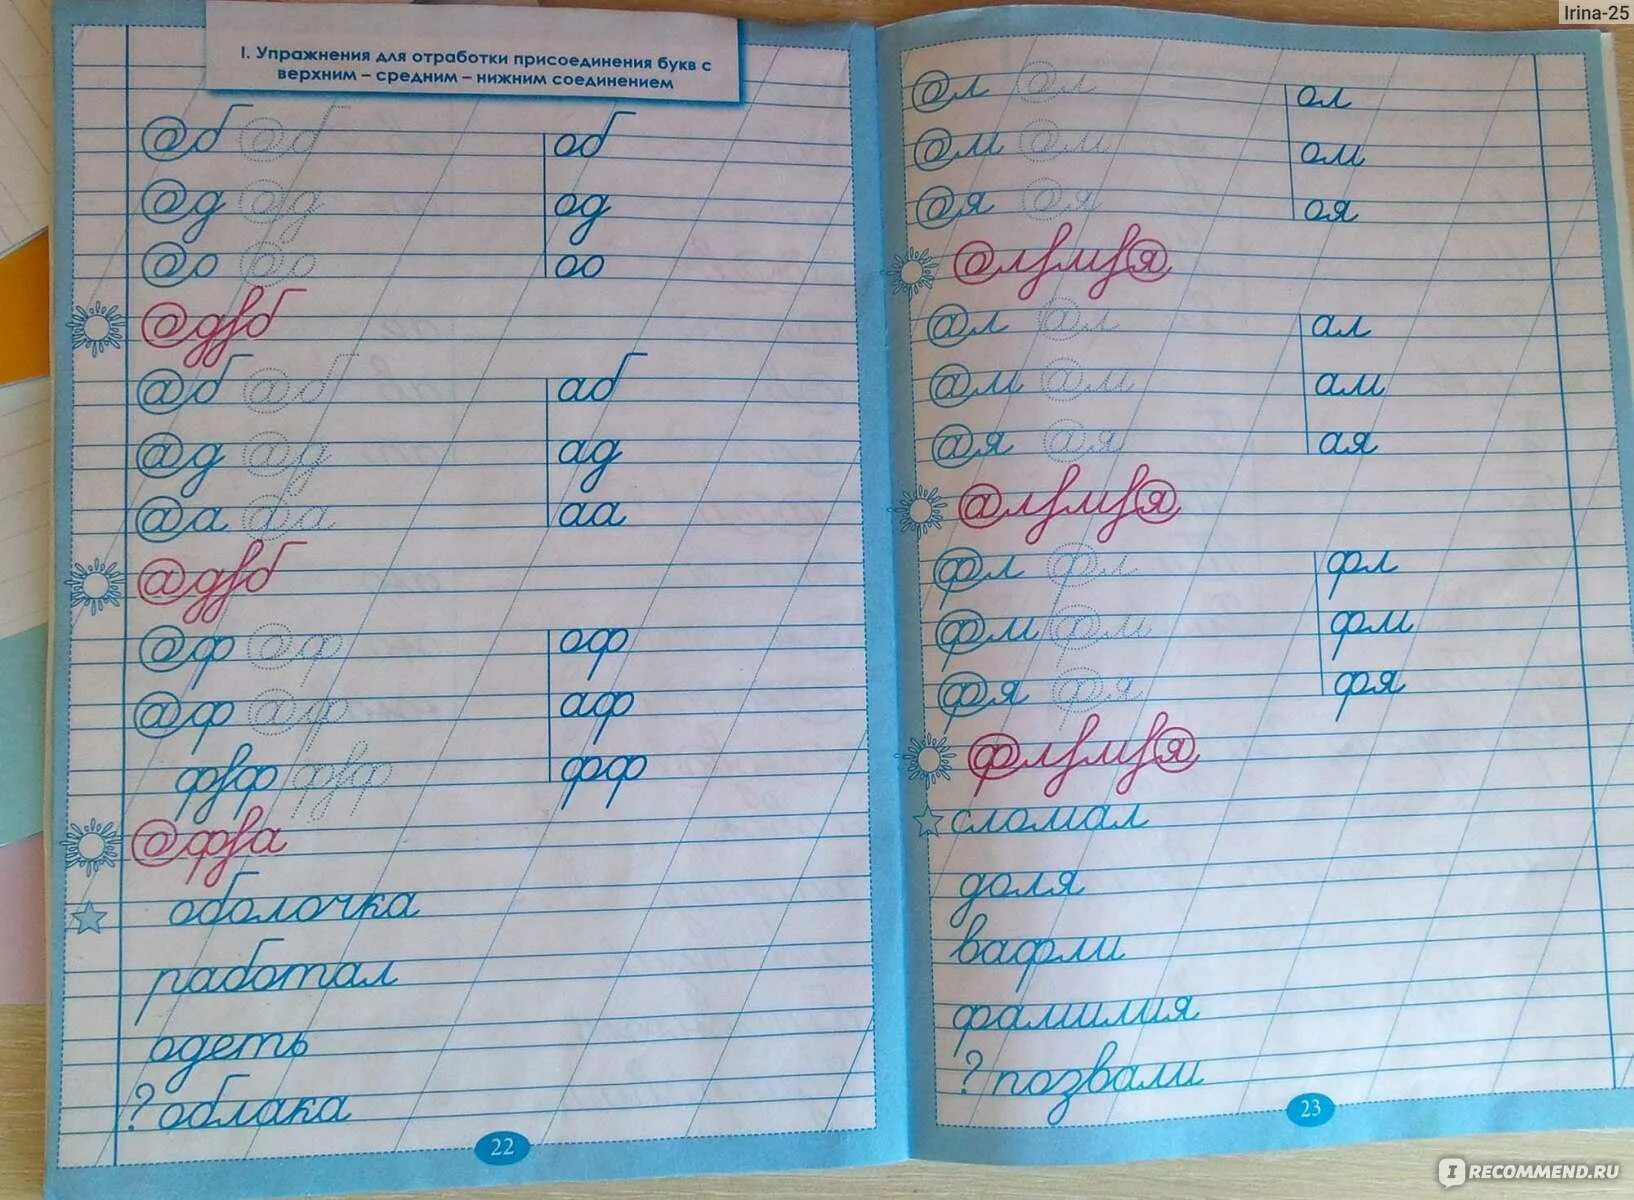 Irina-25
I. Упражнения для отработки присоединения букв с
верхним – средним – нижним соединением
об об об
од од од
оо оо оо
аб аб аб
ад ад ад
аа аа аа
оф оф оф
аф аф аф
фф фф фф
оболочка
работал
одеть
? облака
22
ол ол ол
ом ом ом
оя оя оя
ал ал ал
ам ам ам
ая ая ая
фл фл фл
фм фм фм
фя фя фя
сломал
доля
вафли
фамилия
? позвали
23
IRECOMMEND.RU